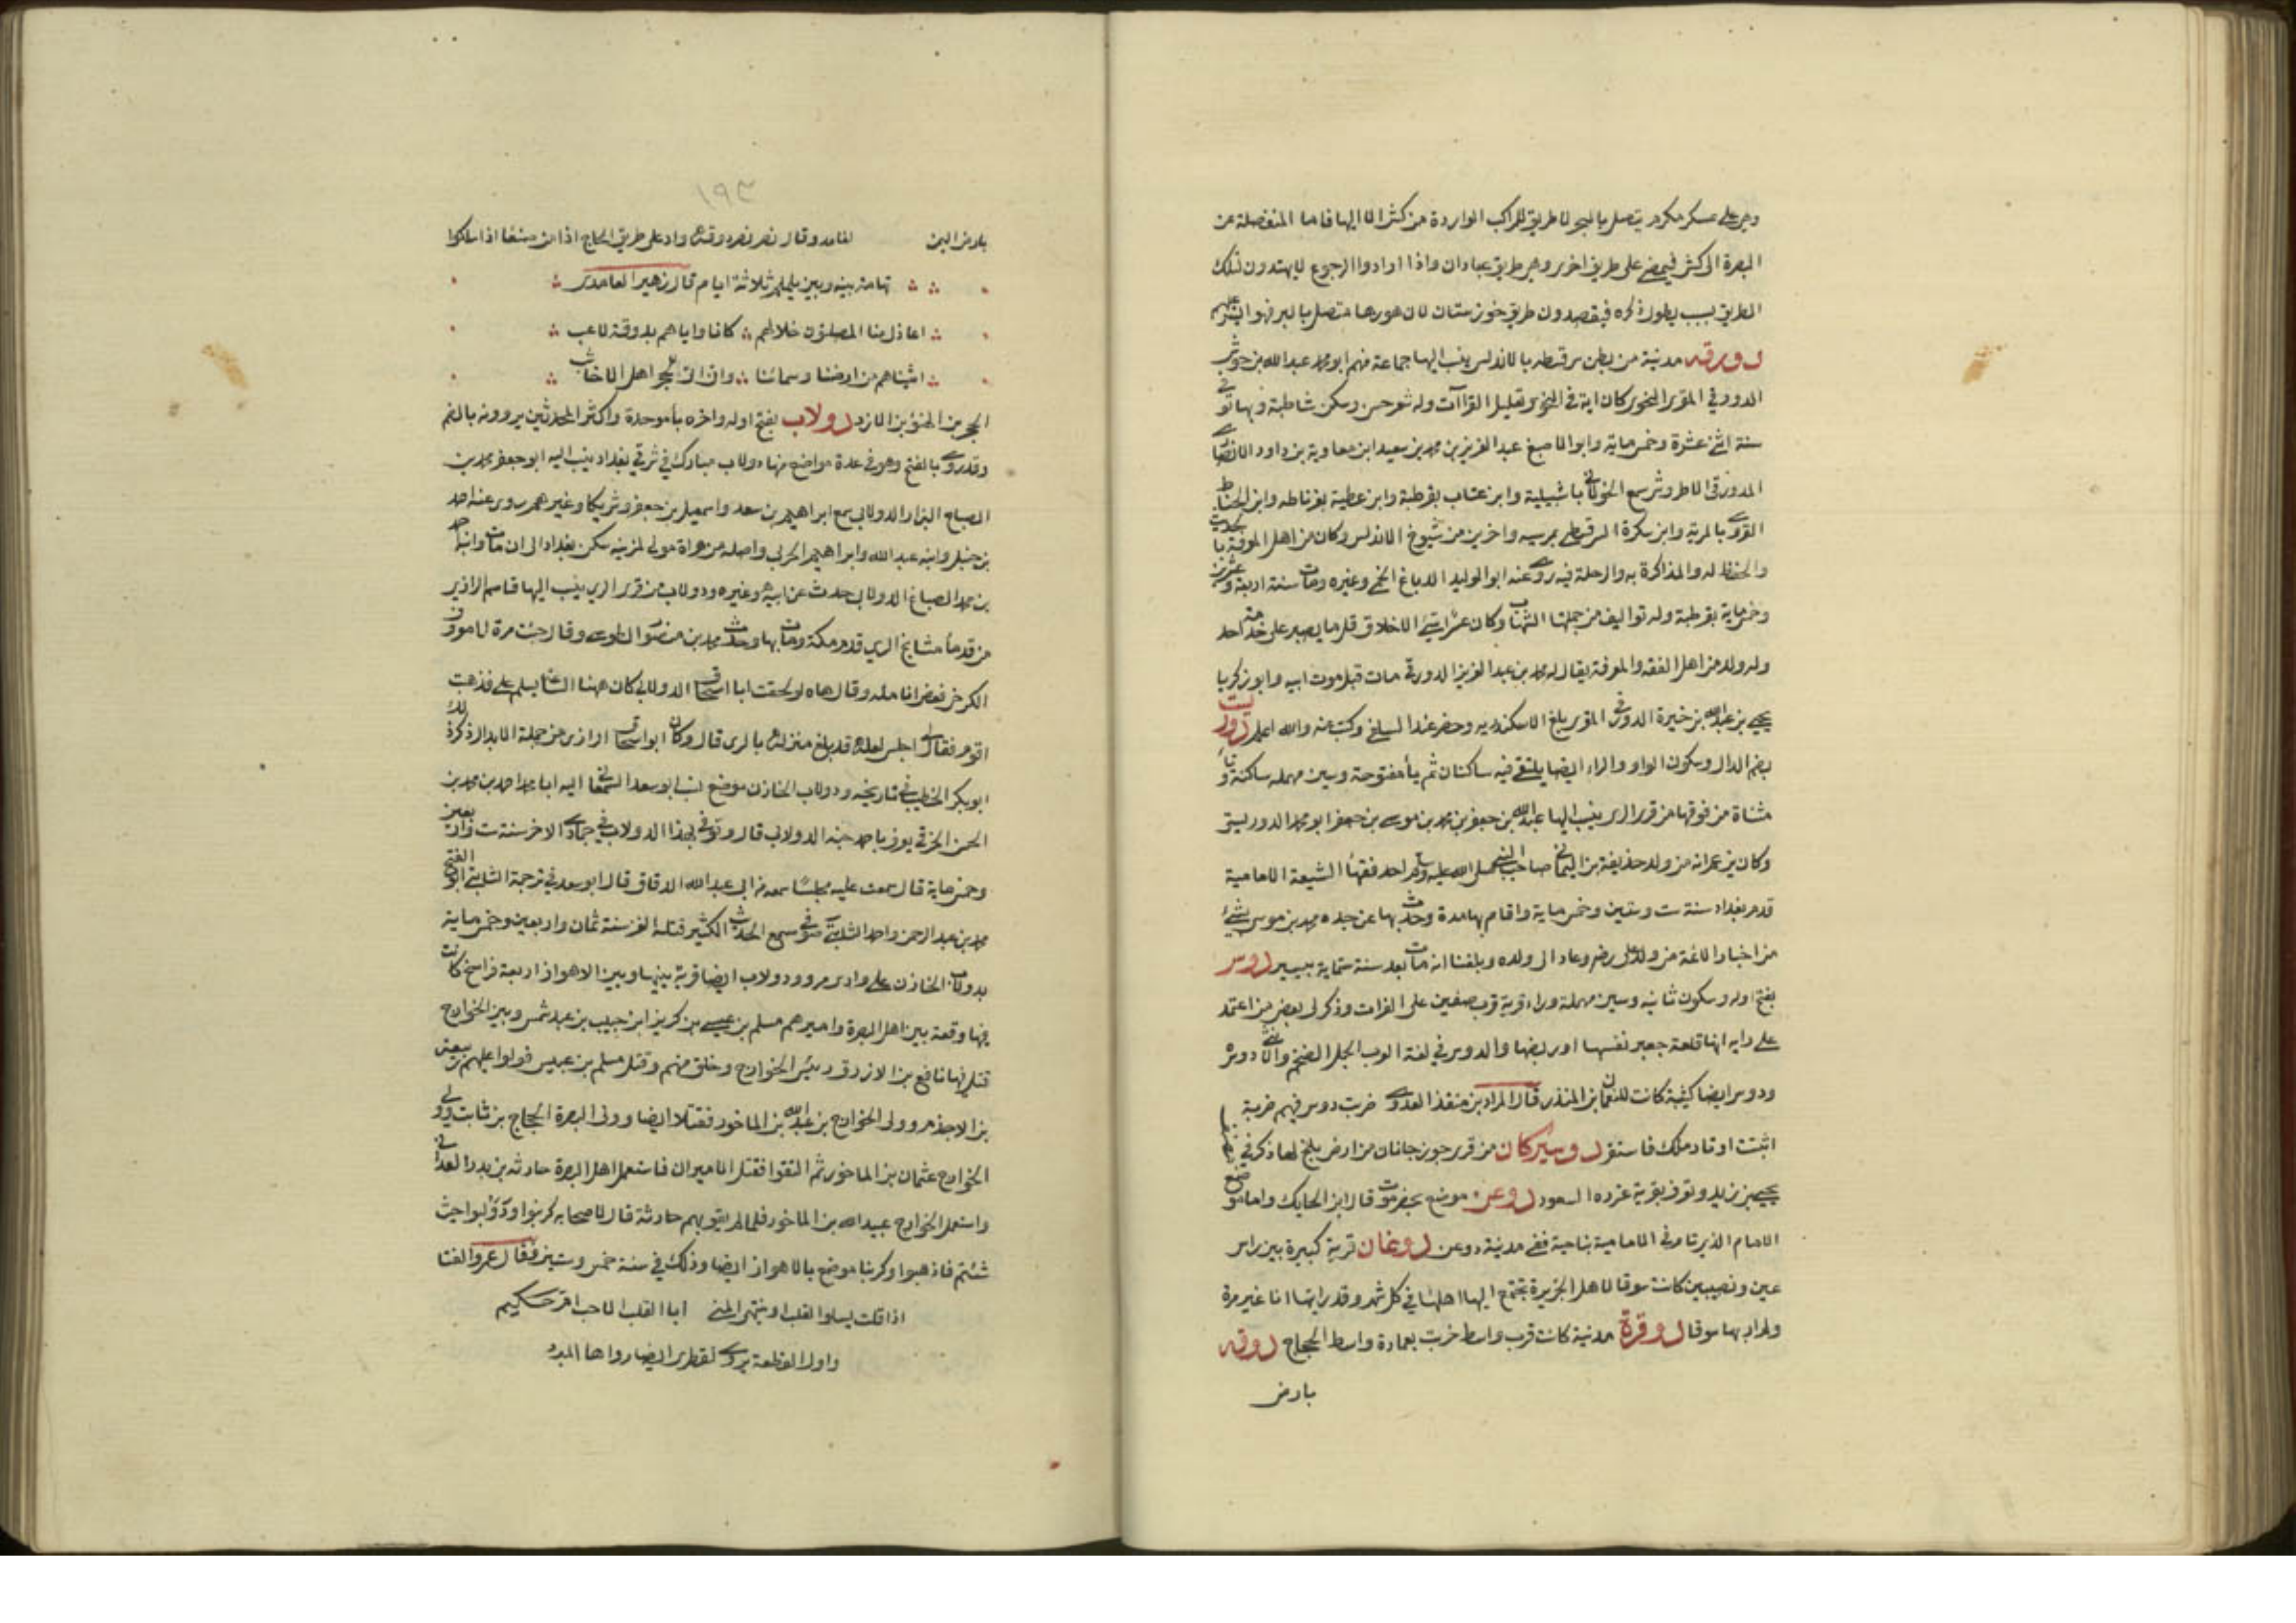 وهي على عسكر مكرم يتصل بالبحر لا طريق للمراكب الواردة من كثر الا اليها فاما المنفصلة عن
البصرة الى كش فيمضى على طريق اخرى وهي طريق عبادان واذا ارادوا الرجوع لا يهتدون لتلك
الطريق بسبب يطول ذكره فيقصدون طريق خوزستان لان هورها متصل بالبر فهو ايسر عليهم
دورقه مدينة من بطن سرقسطه بالاندلس ينسب اليها جماعة منهم ابو محمد عبد الله بن حوش
الدورقي المقرى النحوى كان اية في النحو وتعليل القراآت وله شعر حسن وسكن شاطبة وبها توفي
سنة اثنى عشرة وخمس ماية وابو الاصبغ عبد العزيز بن محمد بن سعيد ابن معاوية بن داود الانصاري
الدورقى الاطروش سمع الخولاني باشبيلية وابن عتاب بقرطبة وابن عطية بغرناطه وابن الخياط
القروى بالمرية وابن سكرة السرقسطى بمرسيه واخرين من شيوخ الاندلس وكان من اهل المعرفة بالحديث
والحفظ له والمذاكرة به والرحلة فيه روى عنه ابو الوليد الدباغ اللخمى وغيره ومات سنة اربعة وعشرين
وخمس ماية بقرطبة وله تواليف من جملتها الشهاب وكان عسر اسيّ الاخلاق قل ما يصبر على خدمة احد
وله ولد من اهل الفقه والمعرفة يقال له محمد بن عبد العزيز الدورقى مات قبل موت ابيه وابو زكريا
يحيى بن عبد الله بن خيرة الدورقى المقرى بلغ الاسكندريه وحضر عند السلفى وكتب عنه والله اعلم دوريست
بضم الدال وسكون الواو والراء ايضا يلتقى فيه ساكنان ثم يأ مفتوحة وسين مهمله ساكنة وتاء
مثناة من فوقها من قرى الرى ينسب اليها عبد الله بن جعفر بن محمد بن موسى بن جعفر ابو محمد الدوريستى
وكان يزعم انه من ولد حذيفة بن اليمان صاحب النبى صلى الله عليه وسلم احد فقهاء الشيعة الامامية
قدم بغداد سنة ست وستين وخمس ماية واقام بها مدة وحدث بها عن جده محمد بن موسى بشئ
من اخبار الائمة من ولد على رضم وعاد الى ولده وبلغنا انه مات بعد سنة ستماية بيسير دوسر
بفتح اوله وسكون ثانيه وسين مهملة وراء قرية قرب صفين على الفرات وذكر لى بعض من اعتمد
على رايه انها قلعة جعبر نفسها او ربضها والدوسر في لغة العرب الجمل الضخم والانثى دوسرة
ودوسر ايضا كتيبة كانت للنعمان بن المنذر قال المرار بن منقذ العدوى ضربت دوسر فيهم ضربة
اثبتت اوتاد ملك فاستقر دوسيركان من قرى جوزجانان من ارض بلخ لها ذكر في
يحيى بن زيد وتعرف بقرية غزوه السعود دوعن موضع بحضرموت قال ابن الحايك واما موضع
الامام الذى تامر في الامامية بناحية ففي مدينة دوعن دوغان قرية كبيرة بين راس
عين ونصيبين كانت سوقا لاهل الجزيرة تجتمع اليها اهلها في كل شهر وقد رايتها انا غير مرة
ولم ار بها سوقا دوقرة مدينة كانت قرب واسط خربت بعمارة واسط الحجاج دوقه
بارض
١٩٣
بارض اليمن لغامد وقال نصر دوقة واد على طريق الحاج اذا من صنعا اذا سلكوا
تهامة بينه وبين يلملم ثلاثة ايام قال زهير الغامدى
اعاذل منا المصلتون خلالهم كانا واياهم بدوقة لاعب
اتيناهم من ارضنا وسمائنا وانى اتى للحجر اهل الاخاشب
الحجر بن الهنؤ بن الازد دولاب بفتح اوله واخره بأموحدة واكثر المحدثين يروونه بالضم
وقد روى بالفتح وهو في عدة مواضع منها دولاب مبارك في شرقي بغداد ينسب اليه ابو جعفر محمد بن
الصباح البزار الدولابى سمع ابراهيم بن سعد واسمعيل بن جعفر وشريكا وغيرهم روى عنه احمد
بن حنبل وابنه عبد الله وابراهيم الحربى واصله من هراة مولى لمزينه سكن بغداد الى ان مات وابنه احمد
بن محمد الصباغ الدولابى حدث عن ابيه وغيره ودولاب من قرى الرى ينسب اليها قاسم الرازى
من قدماً مشايخ الرى قدم مكة ومات بها وحدث محمد بن منصور الطوسى وقال جئت مرة لا معروف
الكرخى فعض انامله وقال هاه لو لحقت ابا اسحاق الدولابى كان ههنا الساعة يسلم على فذهبت
اقوم فقال لى اجلس لعله قد بلغ منزله بالرى قال وكان ابو اسحاق الرازى من جملة الابدال ذكره
ابو بكر الخطيب في تاريخه ودولاب الخازن موضع نسب ابو سعد السمعانى اليه ابا محمد احمد بن محمد بن
الحسن الخرقي يعرف باحمد جنبه الدولابى قال وتوفي بهذا الدولاب في جمادى الاخر سنة ست واربعين
وخمس ماية قال سمعت عليه مجلسًا سمعه من ابى عبد الله الدقاق قال ابو سعد في ترجمة الثابتى ابو الفتح
محمد بن عبد الرحمن واحمد الثابتى صوفى سمع الحديث الكثير قتله الغز سنة ثمان واربعين وخمس ماية
بدولاب الخازن على وادى مرو ودولاب ايضا قرية بينها وبين الاهواز اربعة فراسخ كانت
فيها وقعة بين اهل البصرة واميرهم مسلم بن عيسى بن كريز ابن حبيب بن عبد شمس وبين الخوارج
قتل فيها نافع بن الازرق رئيس الخوارج وخلق منهم وقتل مسلم بن عبيس فولوا عليهم ربيعة
بن الاجذم وولى الخوارج بن عبد الله بن الماخور فقتلا ايضا وولى البصرة الحجاج بن ثابت وولى
الخوارج عثمان بن الماخور ثم التقوا فقتل الاميران فاستعمل اهل البصرة حارثه بن بدر الغدانى
واستعمل الخوارج عبيد الله بن الماخور فلما لم يقو بهم حارثة قال لاصحابه كرنبوا ودولبوا حيث
شئتم فاذهبوا وكرنبا موضع بالاهواز ايضا وذلك في سنة خمس وستين فقال عمرو القنا
اذا قلت يسلو القلب او ينتهى المنى ابا القلب الا حب ام حكيم
واول القطعة يروى لقطرى ايضا رواها المبرد